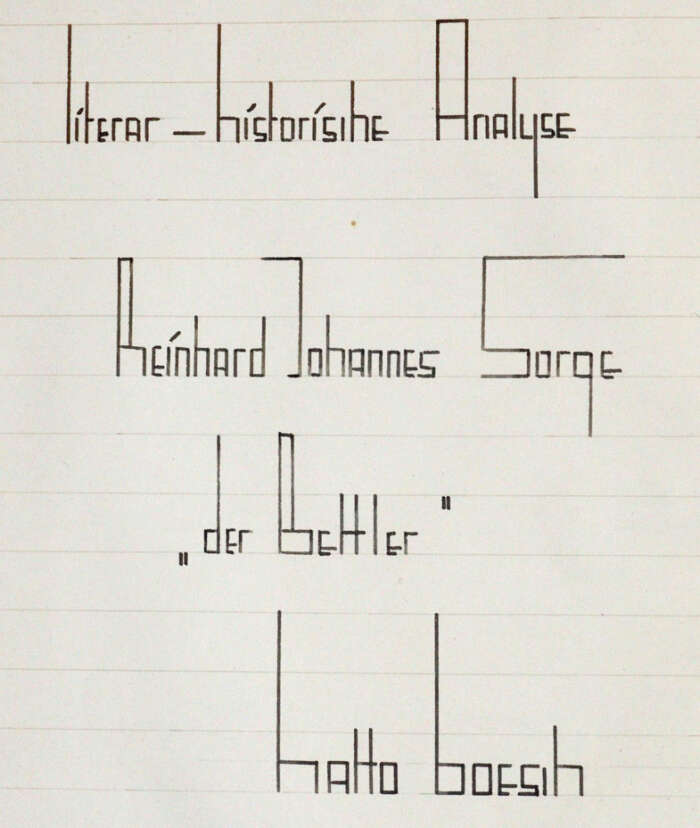 literar – historische Analyse
Reinhard Johannes Sorge
„der Bettler"
hatto boesch